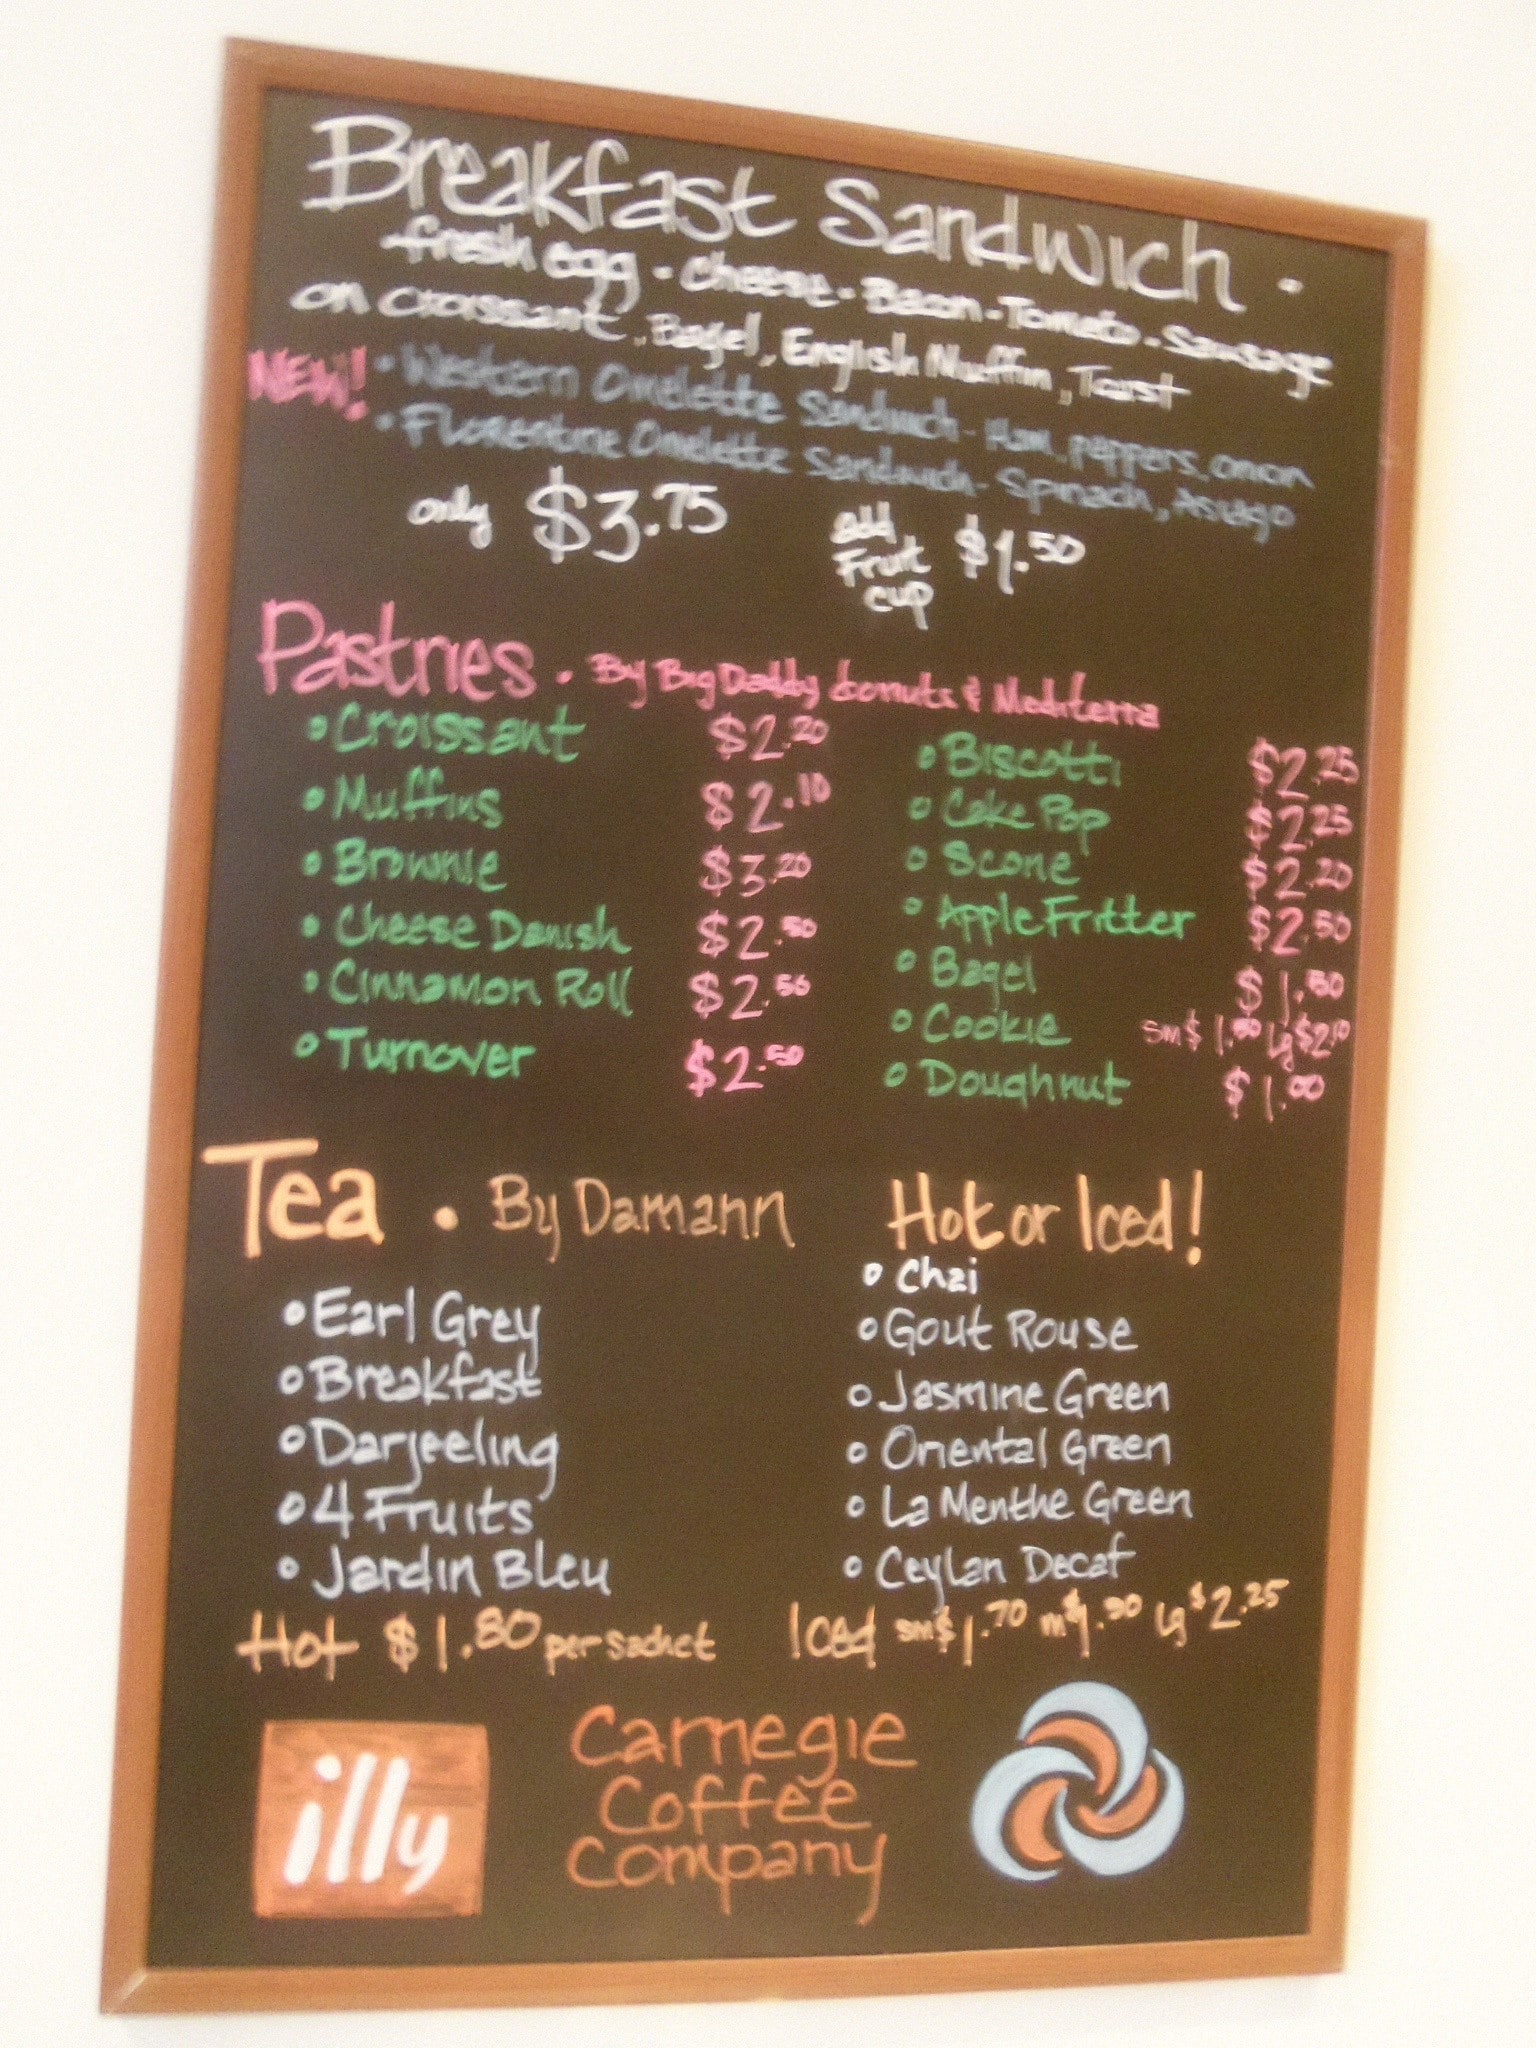 Breakfast Sandwich.
fresh egg - cheese - Bacon - Tomato - Sausage
on croissant, Bagel, English Muffin, Toast
NEW! • Western Omelette Sandwich - Ham, peppers, onion
• Florentine Omelette Sandwich - Spinach, Asiago
only $3.75 add Fruit cup $1.50
Pastries. By Big Daddy donuts & Mediterra
• Croissant $2.20
• Muffins $2.10
• Brownie $3.20
• Cheese Danish $2.50
• Cinnamon Roll $2.50
• Turnover $2.50
• Biscotti $2.25
• Cake Pop $2.25
• Scone $2.20
• Apple Fritter $2.50
• Bagel $1.50
• Cookie sm $1.50 lg $2.10
• Doughnut $1.00
Tea. By Damann Hot or Iced!
• Earl Grey
• Breakfast
• Darjeeling
• 4 Fruits
• Jardin Bleu
• Chai
• Gout Rouse
• Jasmine Green
• Oriental Green
• La Menthe Green
• Ceylan Decaf
Hot $1.80 per sachet Iced sm $1.70 m $1.90 lg $2.25
illy
Carnegie
Coffee
Company